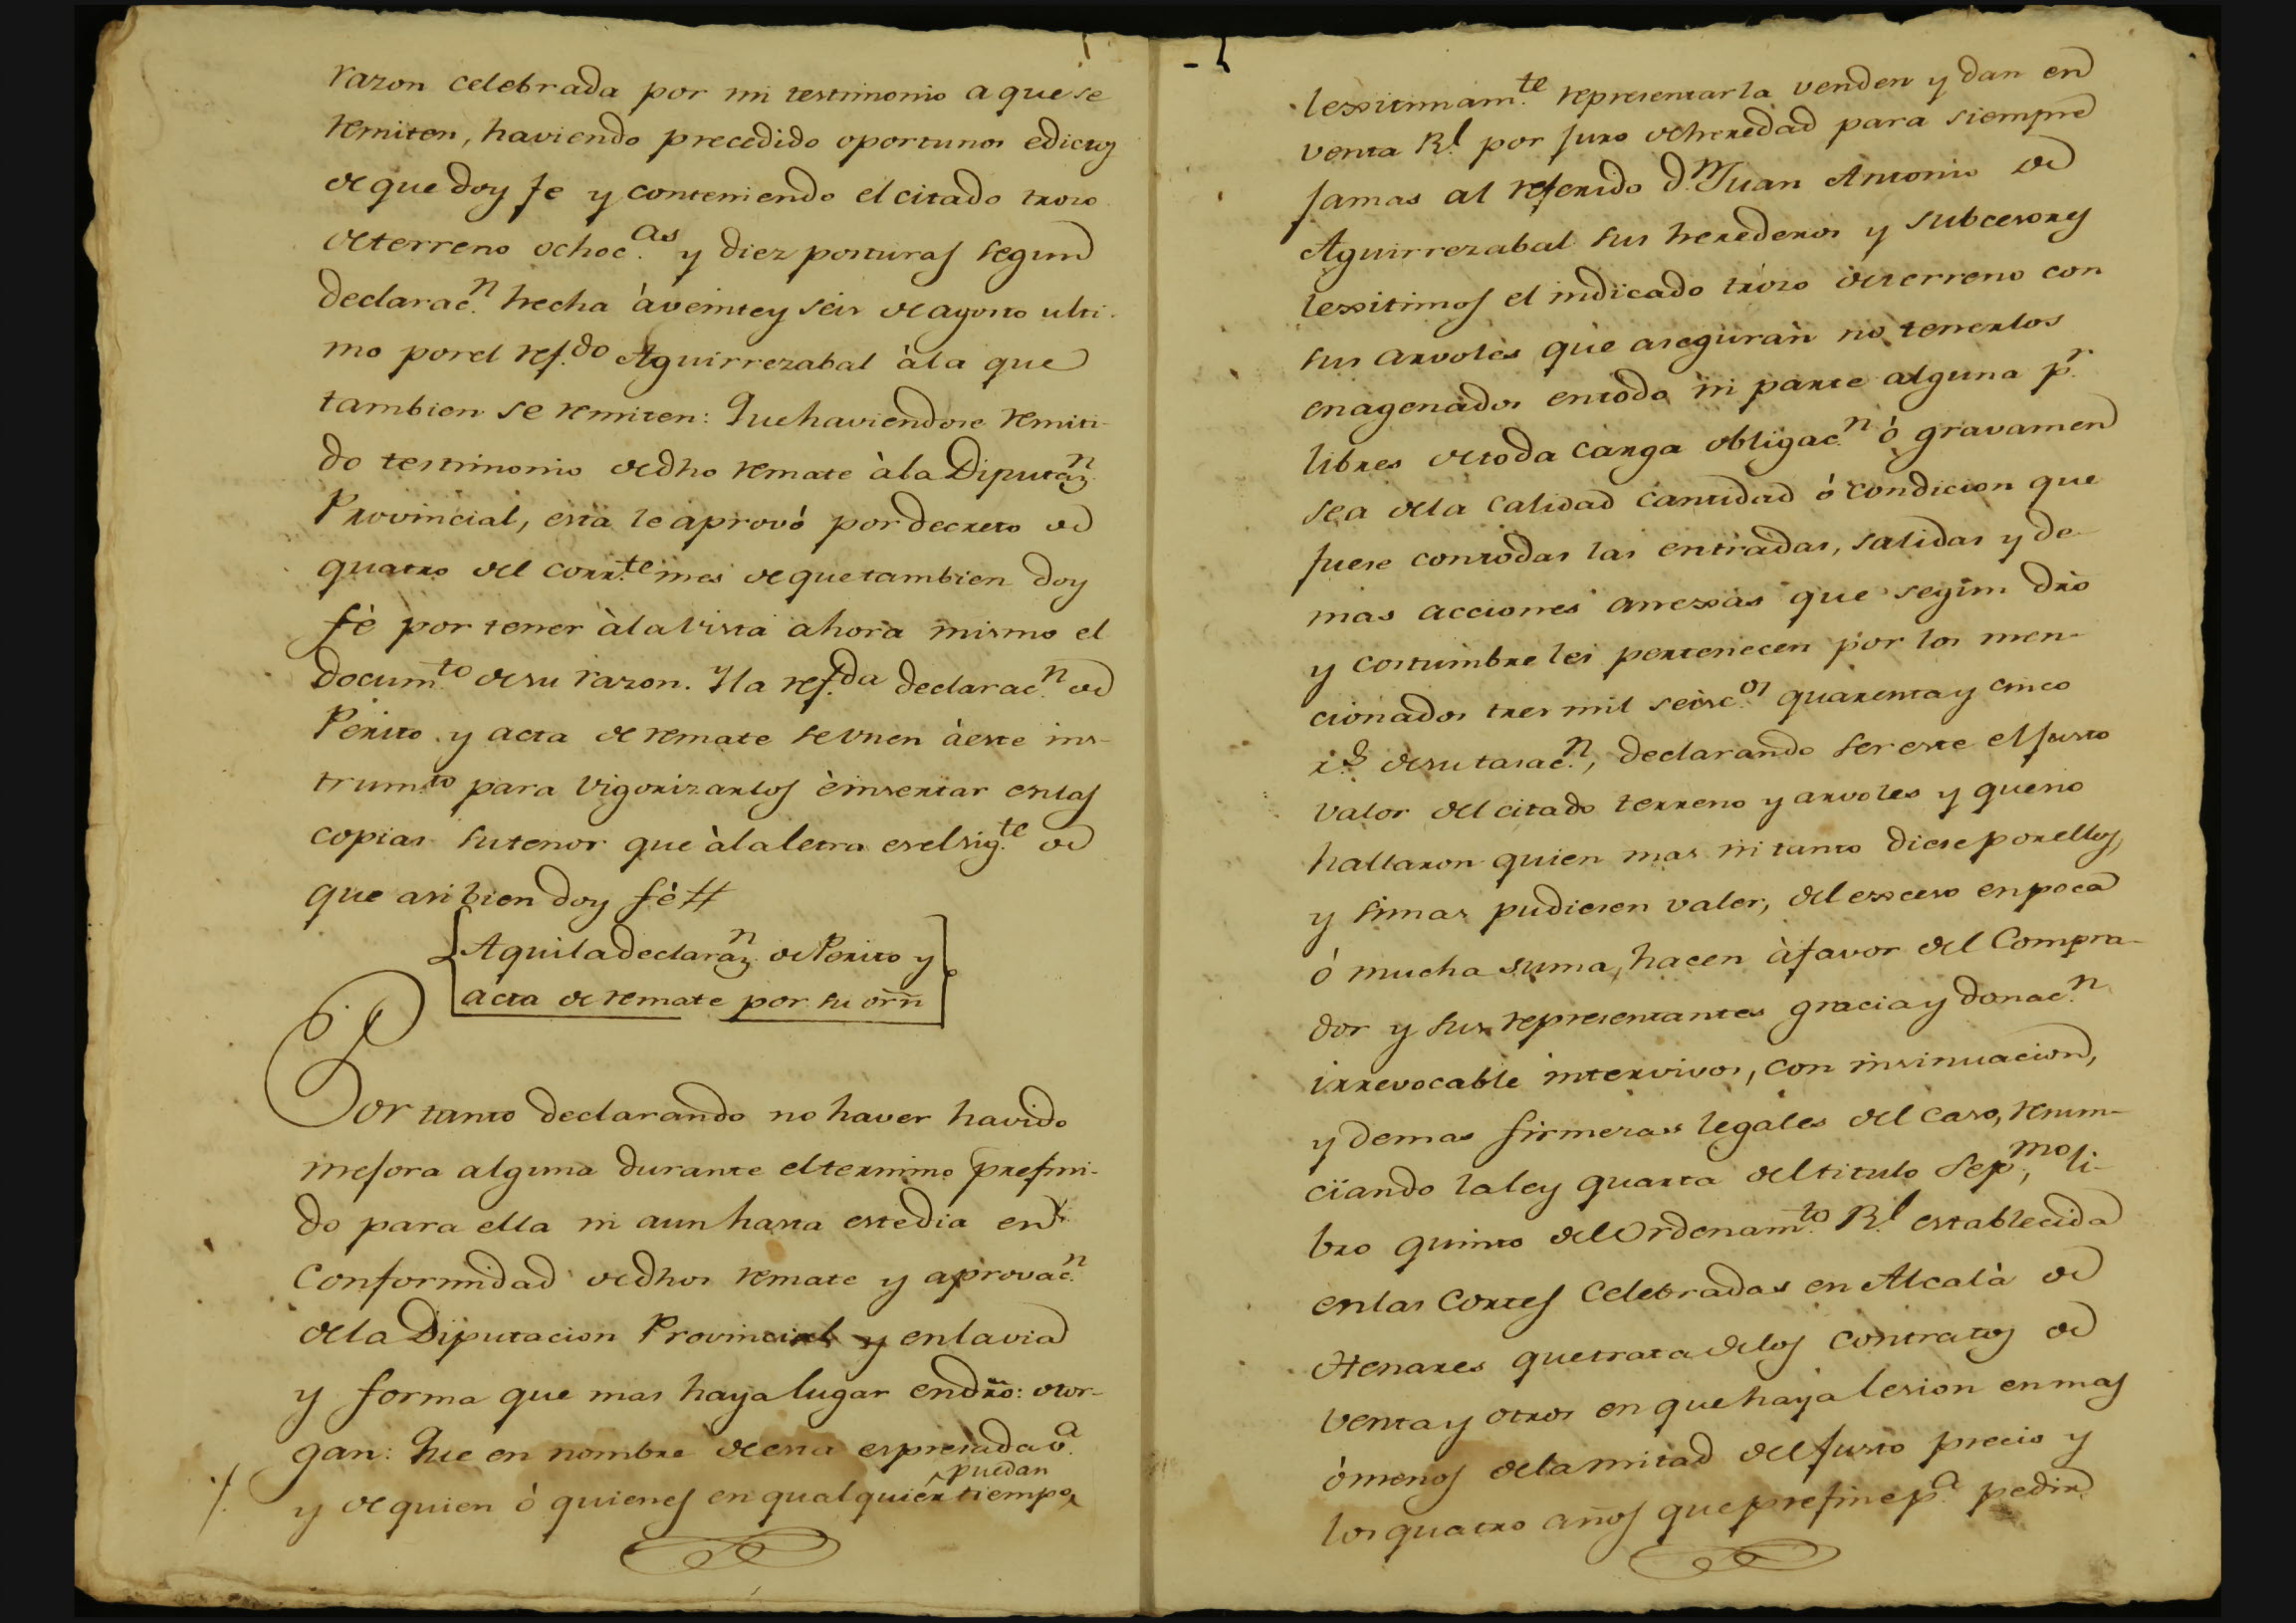 razon celebrada por mi testimonio a que se
remiten, haviendo precedido oportunos edictos
de que doy fe y conteniendo el citado trozo
de terreno ochoc.as y diez posturas segun
declarac.n hecha à veinte y seis de agosto ulti-
mo por el ref.do Aguirrezabal à la que
tambien se remiten: Que haviendose remiti-
do testimonio de dho remate à la Diputaz.n
Provincial, esta le aprovó por decreto de
quatro del corr.te mes de que tambien doy
fè por tener à la vista ahora mismo el
docum.to de su razon. Y la ref.da declarac.n de
Perito y acta de remate se vnen à este ins-
trum.to para vigorizarlos è insertar en las
copias su tenor que à la letra es el sig.te de
que asi bien doy fè #
Aqui la declaraz.n de Perito y
acta de remate por su orn
Por tanto declarando no haver havido
mejora alguna durante el termino prefini-
do para ella ni aun hasta este dia en
conformidad de dhos remate y aprovac.n
de la Diputacion Provincial y en la via
y forma que mas haya lugar en dro: otor-
gan: Que en nombre de esta espresada v.a
puedan
y de quien ò quienes en qualquier tiempo
lexitimam.te representarla venden y dan en
venta R.l por juro de heredad para siempre
jamas al referido d.n Juan Antonio de
Aguirrezabal sus herederos y subcesores
lexitimos el indicado trozo de terreno con
sus arvoles que aseguran no tenerlos
enagenados en todo ni parte alguna p.r
libres de toda carga obligac.n ò gravamen
sea de la calidad cantidad ó condicion que
fuese con todas las entradas, salidas y de-
mas acciones anexas que segun dro
y costumbre les pertenecen por los men-
cionados tres mil seisc.os quarenta y cinco
r.s de su tasac.n, declarando ser este el justo
valor del citado terreno y arvoles y que no
hallaron quien mas ni tanto diese por ellos,
y si mas pudiesen valer, del exceso en poca
ò mucha suma, hacen à favor del Compra-
dor y sus representantes gracia y donac.n
irrevocable intervivos, con insinuacion,
y demas firmezas legales del caso, renun-
ciando la ley quarta del titulo sep.mo, li-
bro quinto del Ordenam.to R.l establecida
en las Cortes Celebradas en Alcalà de
Henares que trata de los contratos de
venta y otros en que haya lesion en mas
ò menos de la mitad del justo precio y
los quatro años que prefine p.a pedir